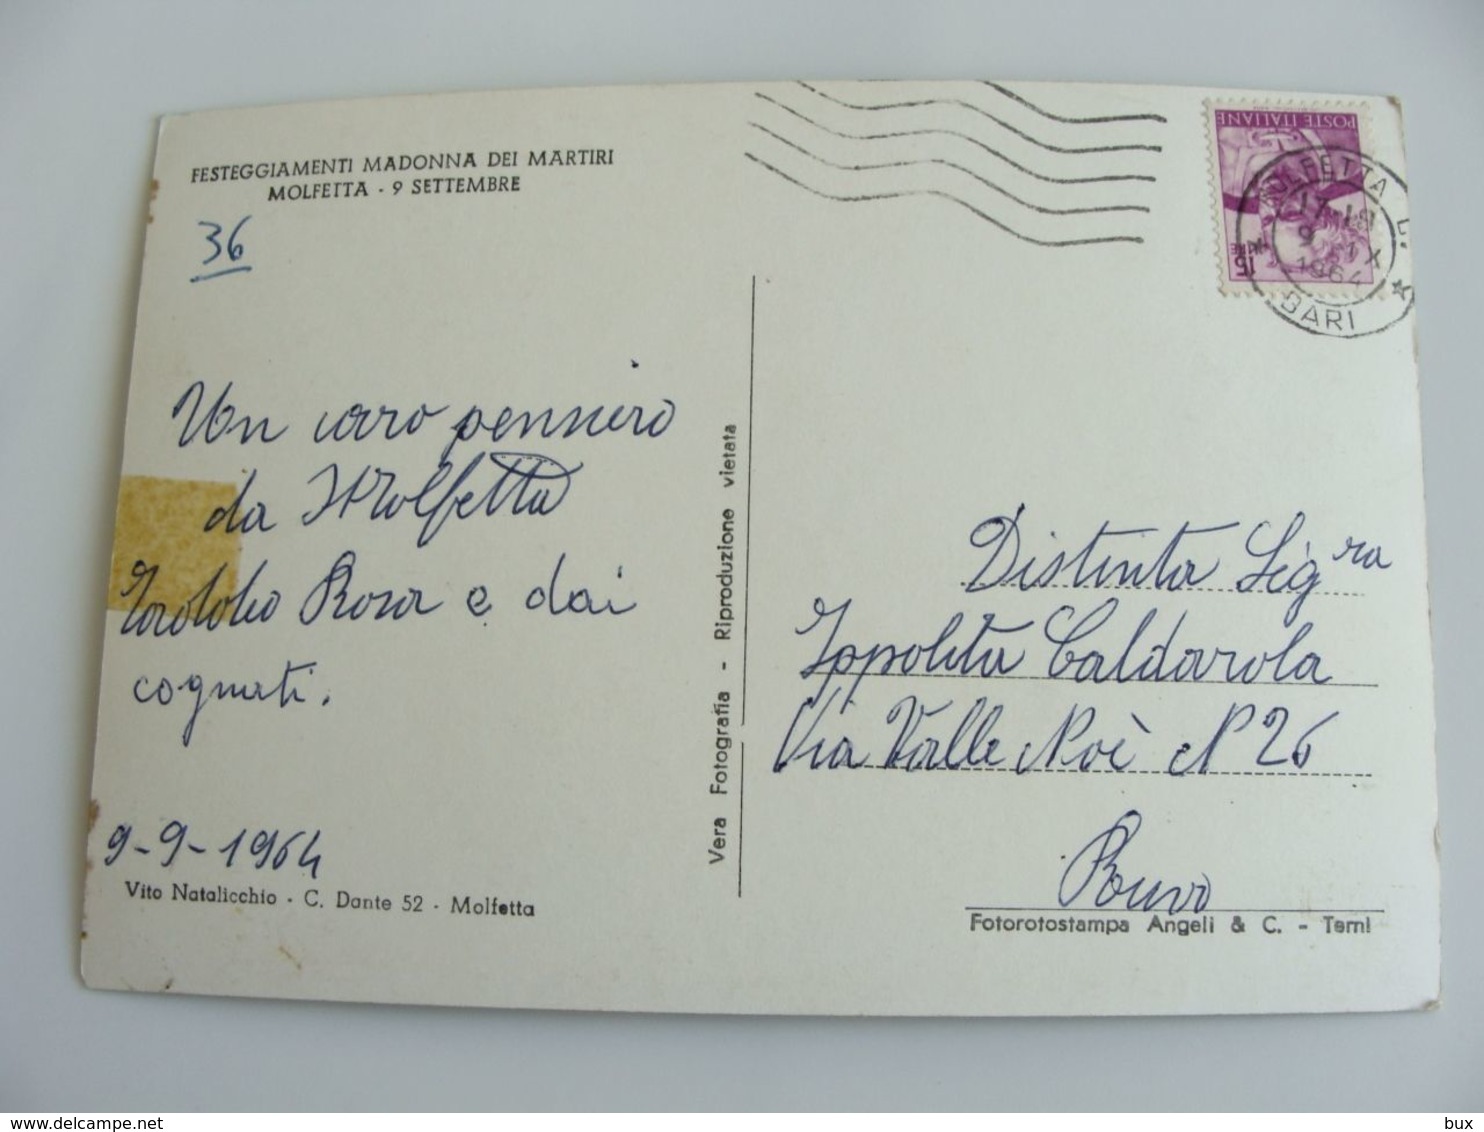 FESTEGGIAMENTI MADONNA DEI MARTIRI
MOLFETTA - 9 SETTEMBRE
36
Un caro pensiero
da Molfetta
Rosa e dai
cognati.
9-9-1964
Vito Natalicchio - C. Dante 52 - Molfetta
Vera Fotografia - Riproduzione vietata
POSTE ITALIANE
15 LIRE
MOLFETTA
9 IX
1964
BARI
Distinta Sig.ra
Ippolita Caldarola
Via Valle Noè N 26
Ruvo
Fotorotostampa Angeli & C. - Terni
delcampe.net
bux